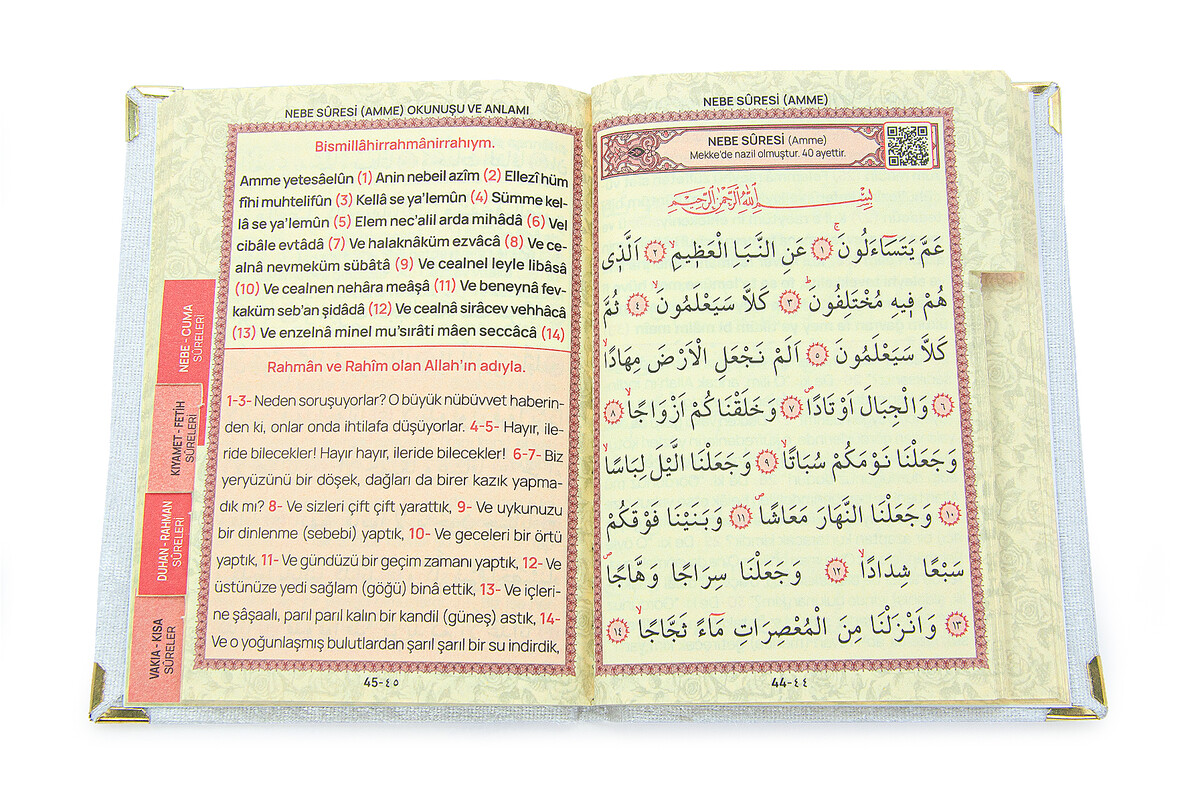 NEBE SÛRESİ (AMME) OKUNUŞU VE ANLAMI
Bismillâhirrahmânirrahıym.
Amme yetesâelûn (1) Anin nebeil azîm (2) Ellezî hüm
fîhi muhtelifûn (3) Kellâ se ya'lemûn (4) Sümme kel-
lâ se ya'lemûn (5) Elem nec'alil arda mihâdâ (6) Vel
cibâle evtâdâ (7) Ve halaknâküm ezvâcâ (8) Ve ce-
alnâ nevmeküm sübâtâ (9) Ve cealnel leyle libâsâ
(10) Ve cealnen nehâra meâşâ (11) Ve beneynâ fev-
kaküm seb'an şidâdâ (12) Ve cealnâ sirâcev vehhâcâ
(13) Ve enzelnâ minel mu'sırâti mâen seccâcâ (14)
Rahmân ve Rahîm olan Allah'ın adıyla.
1-3- Neden soruşuyorlar? O büyük nübüvvet haberin-
den ki, onlar onda ihtilafa düşüyorlar. 4-5- Hayır, ile-
ride bilecekler! Hayır hayır, ileride bilecekler! 6-7- Biz
yeryüzünü bir döşek, dağları da birer kazık yapma-
dık mı? 8- Ve sizleri çift çift yarattık, 9- Ve uykunuzu
bir dinlenme (sebebi) yaptık, 10- Ve geceleri bir örtü
yaptık, 11- Ve gündüzü bir geçim zamanı yaptık, 12- Ve
üstünüze yedi sağlam (göğü) binâ ettik, 13- Ve içleri-
ne şâşaalı, parıl parıl kalın bir kandil (güneş) astık, 14-
Ve o yoğunlaşmış bulutlardan şarıl şarıl bir su indirdik,
45-٤٥
NEBE - CUMA
SÛRELERİ
KIYAMET - FETİH
SÛRELERİ
DUHAN - RAHMAN
SÛRELERİ
VAKIA - KISA
SÛRELER
NEBE SÛRESİ (AMME)
NEBE SÛRESİ (Amme)
Mekke'de nazil olmuştur. 40 ayettir.
بِسْمِ اللّٰهِ الرَّحْمٰنِ الرَّحٖيمِ
عَمَّ يَتَسَٓاءَلُونَۚ ﴿١﴾ عَنِ النَّبَاِ الْعَظٖيمِۙ ﴿٢﴾ اَلَّذٖى
هُمْ فٖيهِ مُخْتَلِفُونَۜ ﴿٣﴾ كَلَّا سَيَعْلَمُونَۙ ﴿٤﴾ ثُمَّ
كَلَّا سَيَعْلَمُونَ ﴿٥﴾ اَلَمْ نَجْعَلِ الْاَرْضَ مِهَادًاۙ
﴿٦﴾ وَالْجِبَالَ اَوْتَادًاۖ ﴿٧﴾ وَخَلَقْنَاكُمْ اَزْوَاجًاۙ ﴿٨﴾
وَجَعَلْنَا نَوْمَكُمْ سُبَاتًاۙ ﴿٩﴾ وَجَعَلْنَا الَّيْلَ لِبَاسًاۙ
﴿١٠﴾ وَجَعَلْنَا النَّهَارَ مَعَاشًاۖ ﴿١١﴾ وَبَنَيْنَا فَوْقَكُمْ
سَبْعًا شِدَادًاۙ ﴿١٢﴾ وَجَعَلْنَا سِرَاجًا وَهَّاجًاۖ
﴿١٣﴾ وَاَنْزَلْنَا مِنَ الْمُعْصِرَاتِ مَٓاءً ثَجَّاجًاۙ ﴿١٤﴾
44-٤٤